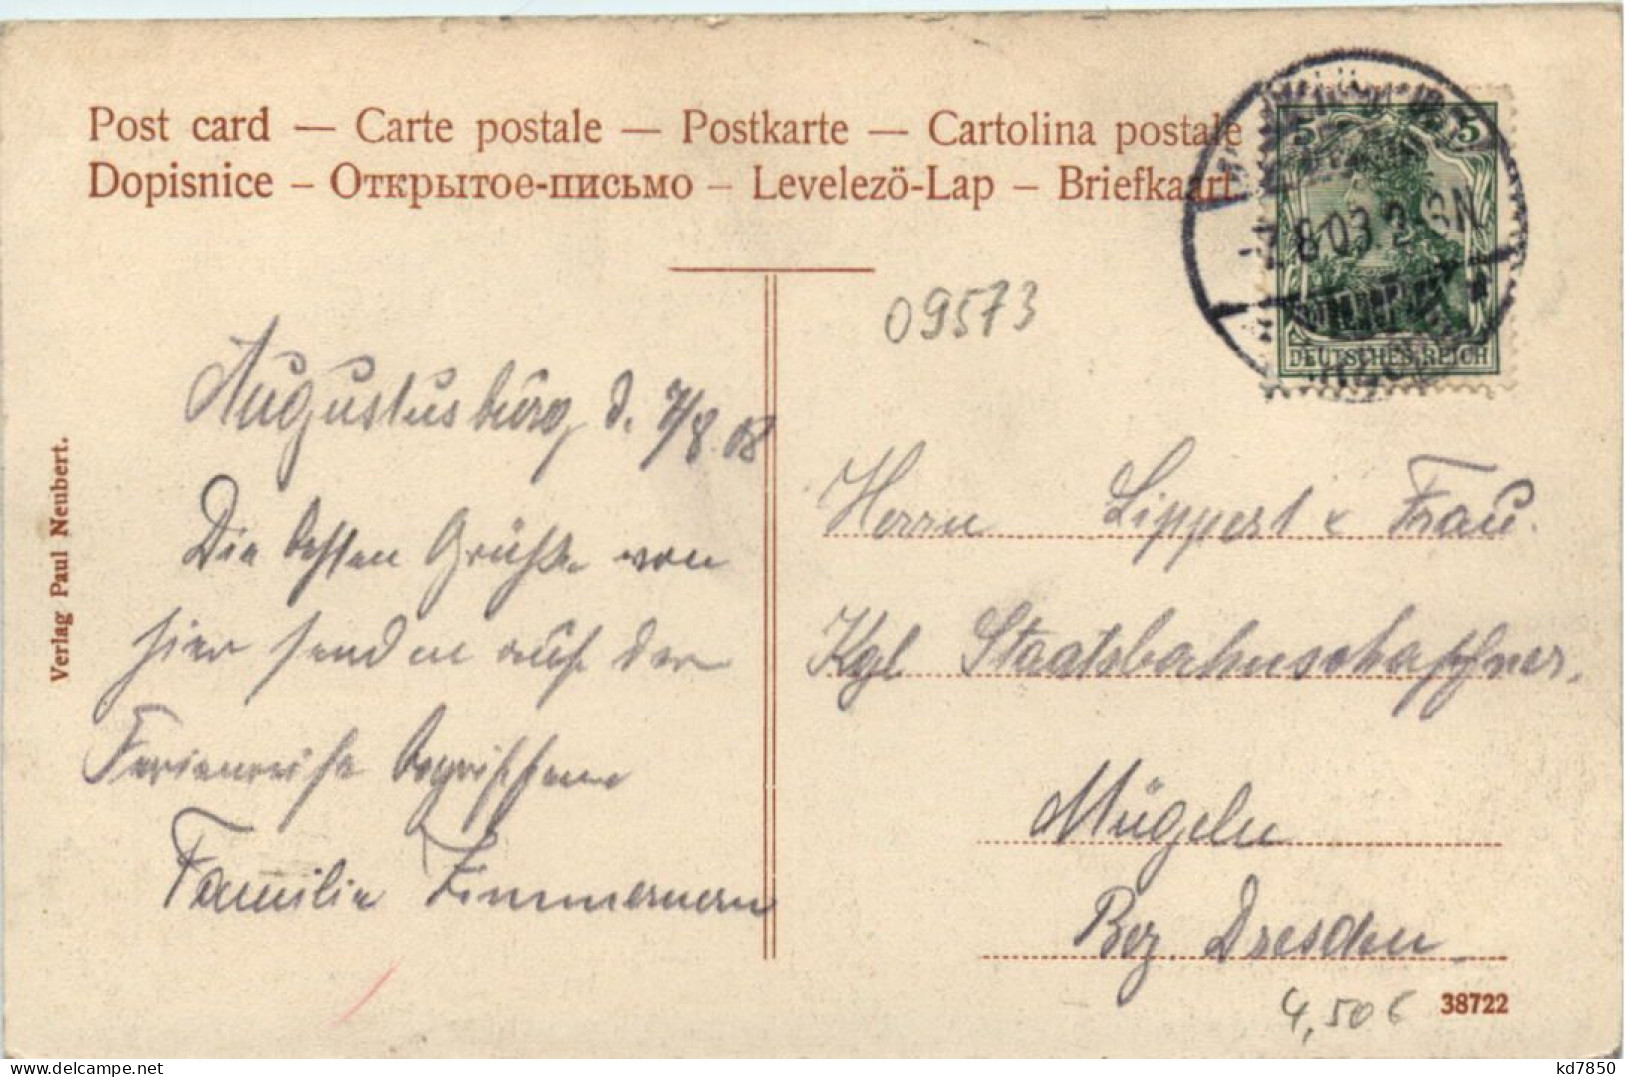 Post card — Carte postale — Postkarte — Cartolina postale
Dopisnice – Открытое-письмо – Levelezö-Lap – Briefkaart
5 5
8 09 2-3N
DEUTSCHES REICH
09573
Verlag Paul Neubert.
Augustusburg, d. 7/8. 08
Die besten Grüße von
hier senden auf der
Ferienreise begriffene
Familie
Herrn Lippert & Frau.
Kgl Staatsbahnschaffner.
Mügeln
Bez. Dresden
4,50 €
38722
kd7850